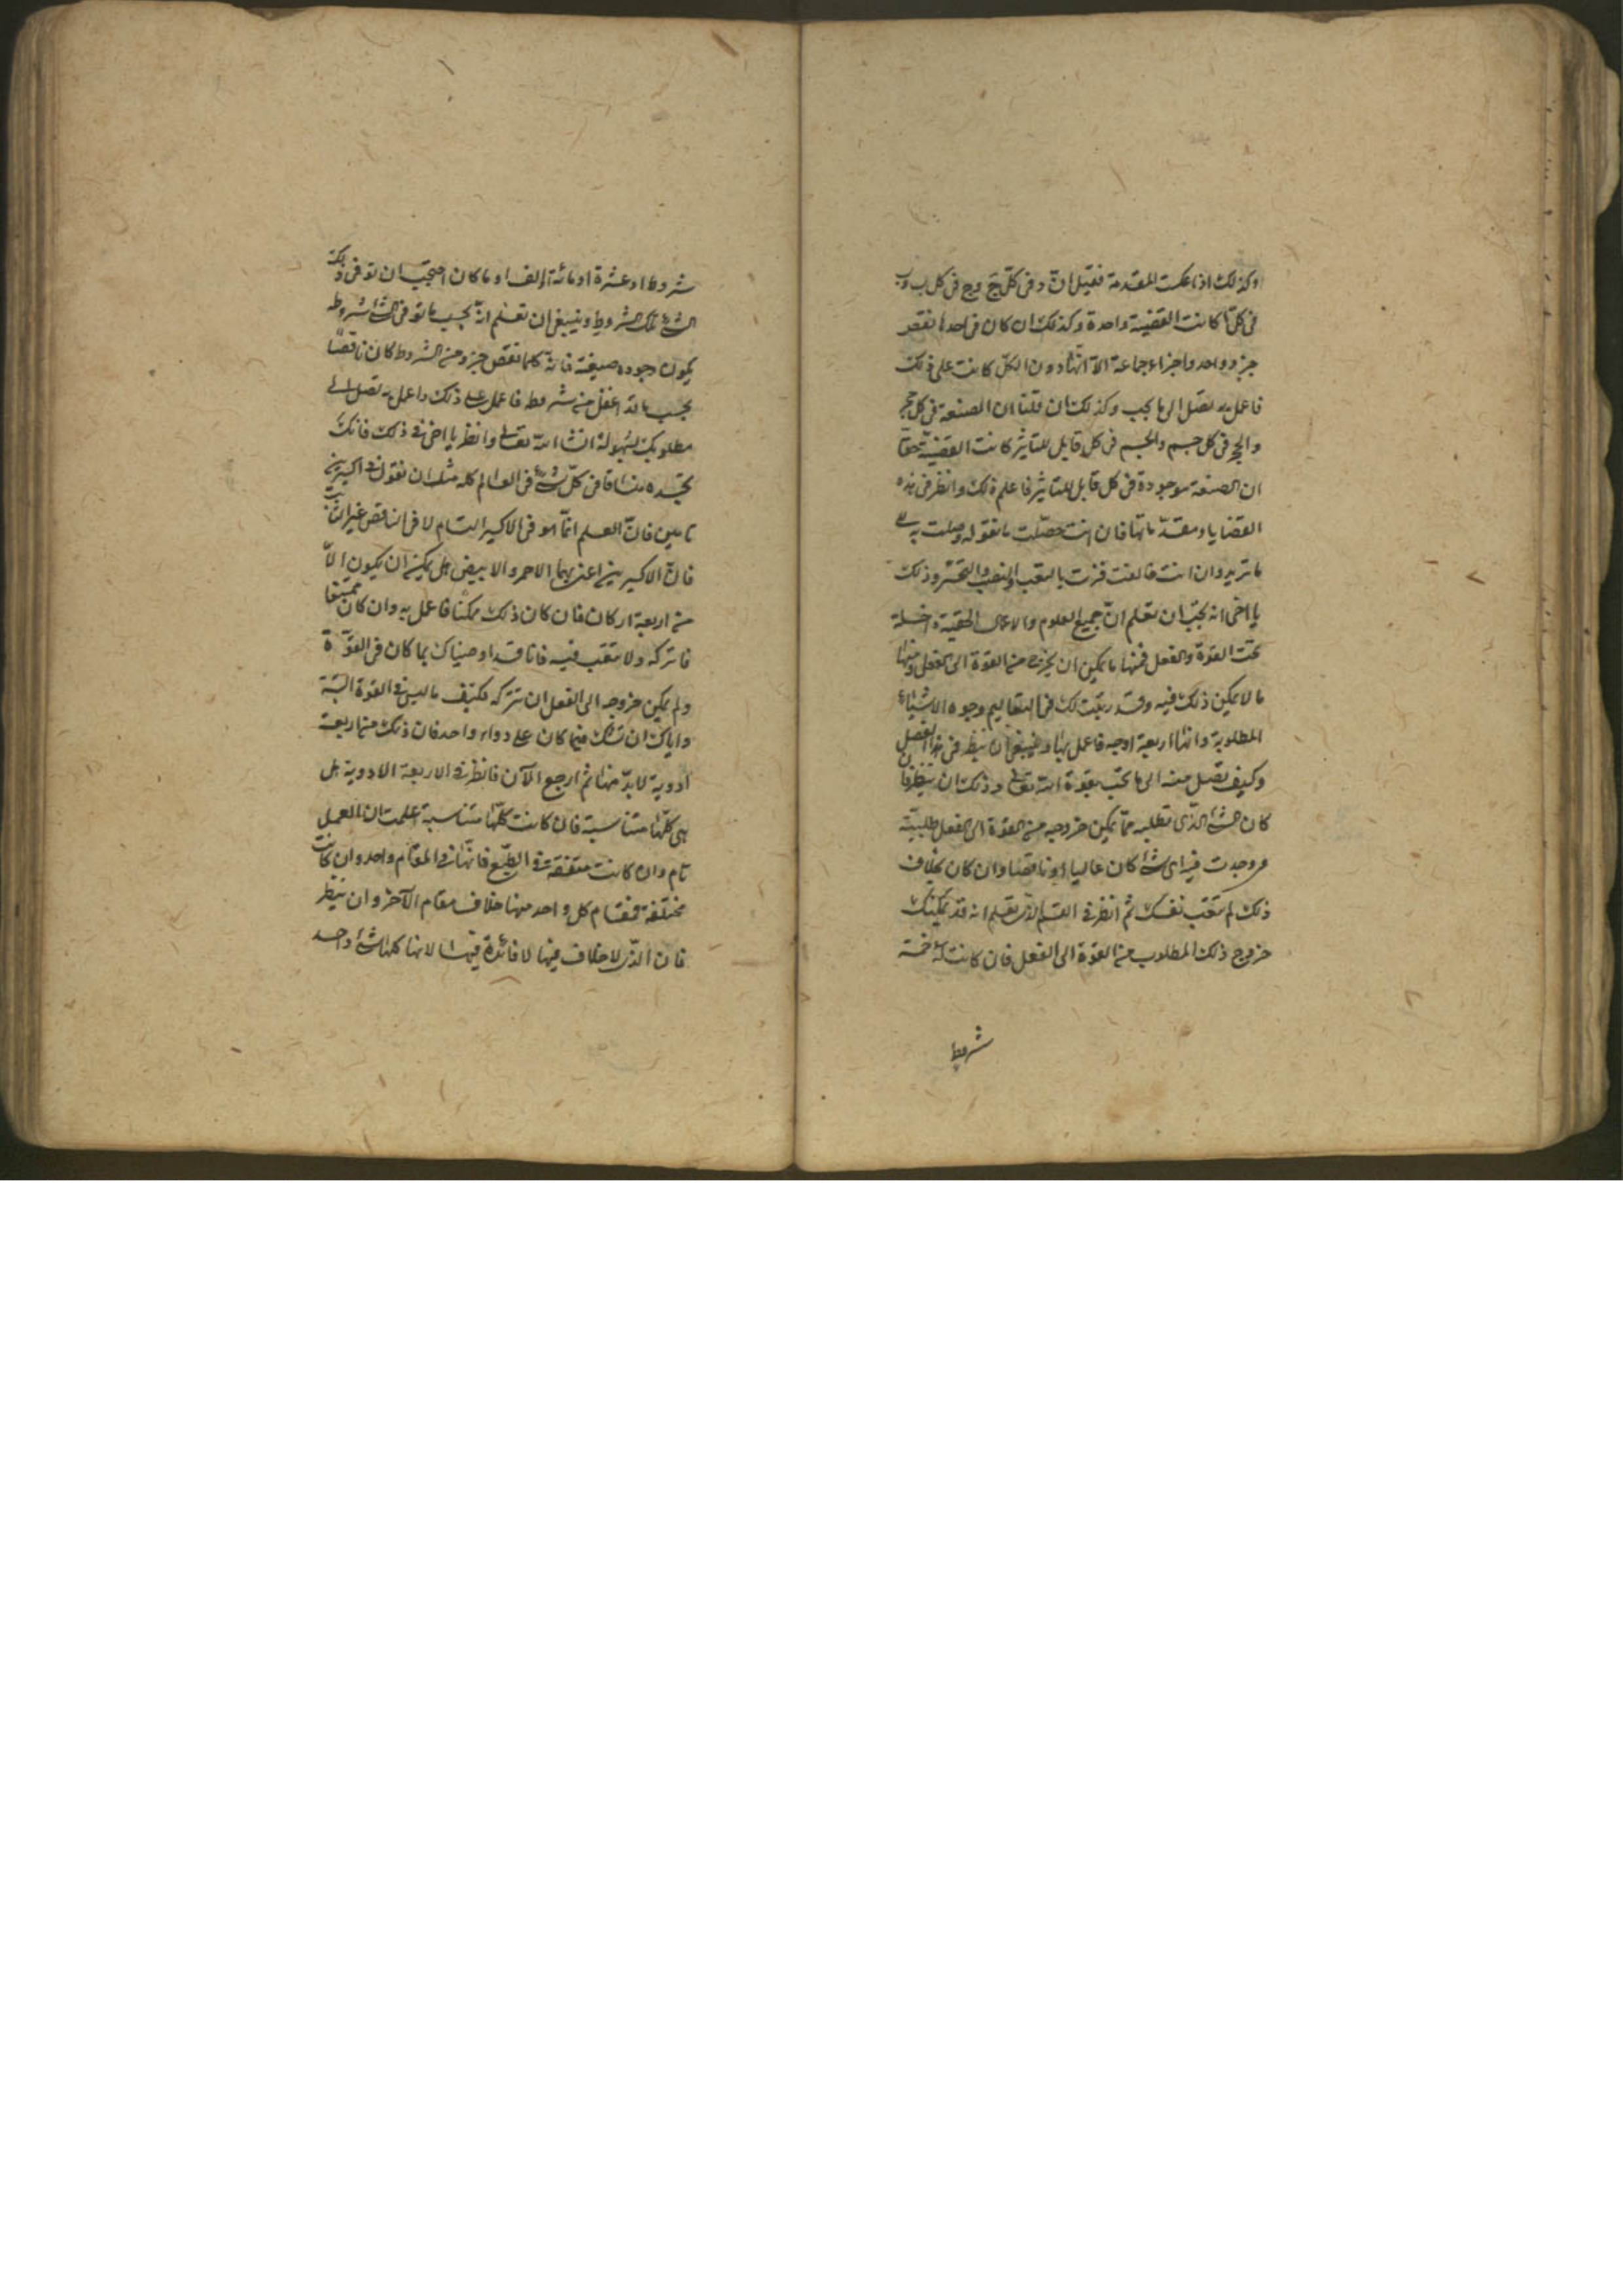 وكذلك اذا عكست المقدمة فقيل انّ د فى كلّ ج وج فى كل ب وب
فى كل ا كانت القضية واحدة وكذلك ان كان فى احدها نقص
جزء واحد واجزاء جماعة الا انها دون الكلّ كانت على ذلك
فاعمل به تصل الى ما يجب وكذلك ان قلنا ان الصنعة فى كل حجر
والحجر فى كل جسم والجسم فى كل قابل للتاثير كانت القضية حقا
ان الصنعة موجودة فى كل قابل للتاثير فاعلم ذلك وانظر فى هذه
القضايا ومقدّماتها فان انت حصّلت ما نقوله وصلت به الى
ما تريد وان انت خالفت فزت بالتعب والنصب والتحسّر وذلك
يا اخى انه يجب ان تعلم انّ جميع العلوم والاعمال الحقية داخلة
تحت القوة والفعل فمنها ما يمكن ان يخرج من القوة الى الفعل ومنها
ما لا يمكن ذلك فيه وقد رتبت لك فى التعاليم وجوه الاشياء
المطلوبة وانها اربعة اوجه فاعمل بها وينبغى ان ينظر فى هذا الفصل
وكيف تصل منه الى ما تحب بقوة الله تعالى وذلك ان ينظر فان
كان الشئ الذى تطلبه ممّا يمكن خروجه من القوة الى الفعل طلبته
ووجدت فيه اى شئ كان عاليا او ناقصا وان كان بخلاف
ذلك لم تتعب نفسك ثم انظر فى القسم الذى تعلم انه قد يمكنك
خروج ذلك المطلوب من القوة الى الفعل فان كانت له خمسة
شروط
شروط او عشرة او مائة او الف او ما كان احتجت ان توفى ذلك
الشئ تلك الشروط وينبغى ان تعلم انّه بحسب ما توفى الشئ شروطه
يكون وجوده صيغة فانه كلما نقص جزء من الشروط كان ناقصًا
بحسب ما قد اغفل من شروطه فاعمل على ذلك واعمل به تصل الى
مطلوبك بسهولة انشاء الله تعالى وانظر يا اخى فى ذلك فانك
تجده منساقا فى كلّ شئ فى العالم كله مثل ان نقول فى اكسيرين
تامين فانّ العلم انّما هو فى الاكسير التام لا فى الناقص غير الثابت
فانّ الاكسيرين اعنى بهما الاحمر والابيض هل يمكن ان يكون الّا
من اربعة اركان فان كان ذلك ممكنا فاعمل به وان كان ممتنعا
فاتركه ولا تتعب فيه فانا قد اوصيناك بما كان فى القوّة
ولم يمكن خروجه الى الفعل ان تتركه فكيف ما ليس فى القوة البتة
واياك ان تشك فيما كان على دواء واحد فان ذلك من اربعة
ادوية لا بدّ منها ثم ارجع الآن فانظر فى الاربعة الادوية هل
هى كلّها متناسبة فان كانت كلّها متناسبة علمت ان العمل
تام وان كانت متفقة فى الطبع فانها فى المقام واحد وان كانت
مختلفة فمقام كل واحد منها خلاف مقام الآخر وان ينظر
فان الذى لا خلاف فيها لا فائدة فيها لانها كلها شئ واحد